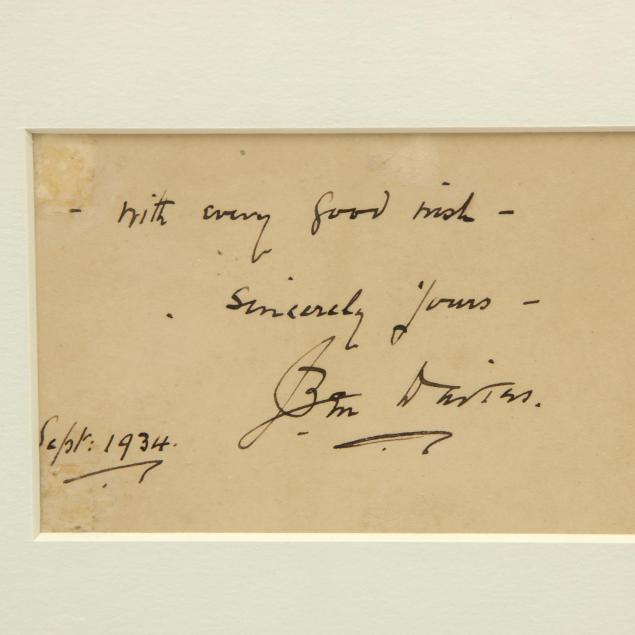 - with every good wish -
Sincerely Yours -
Ben Davies.
Sept: 1934.